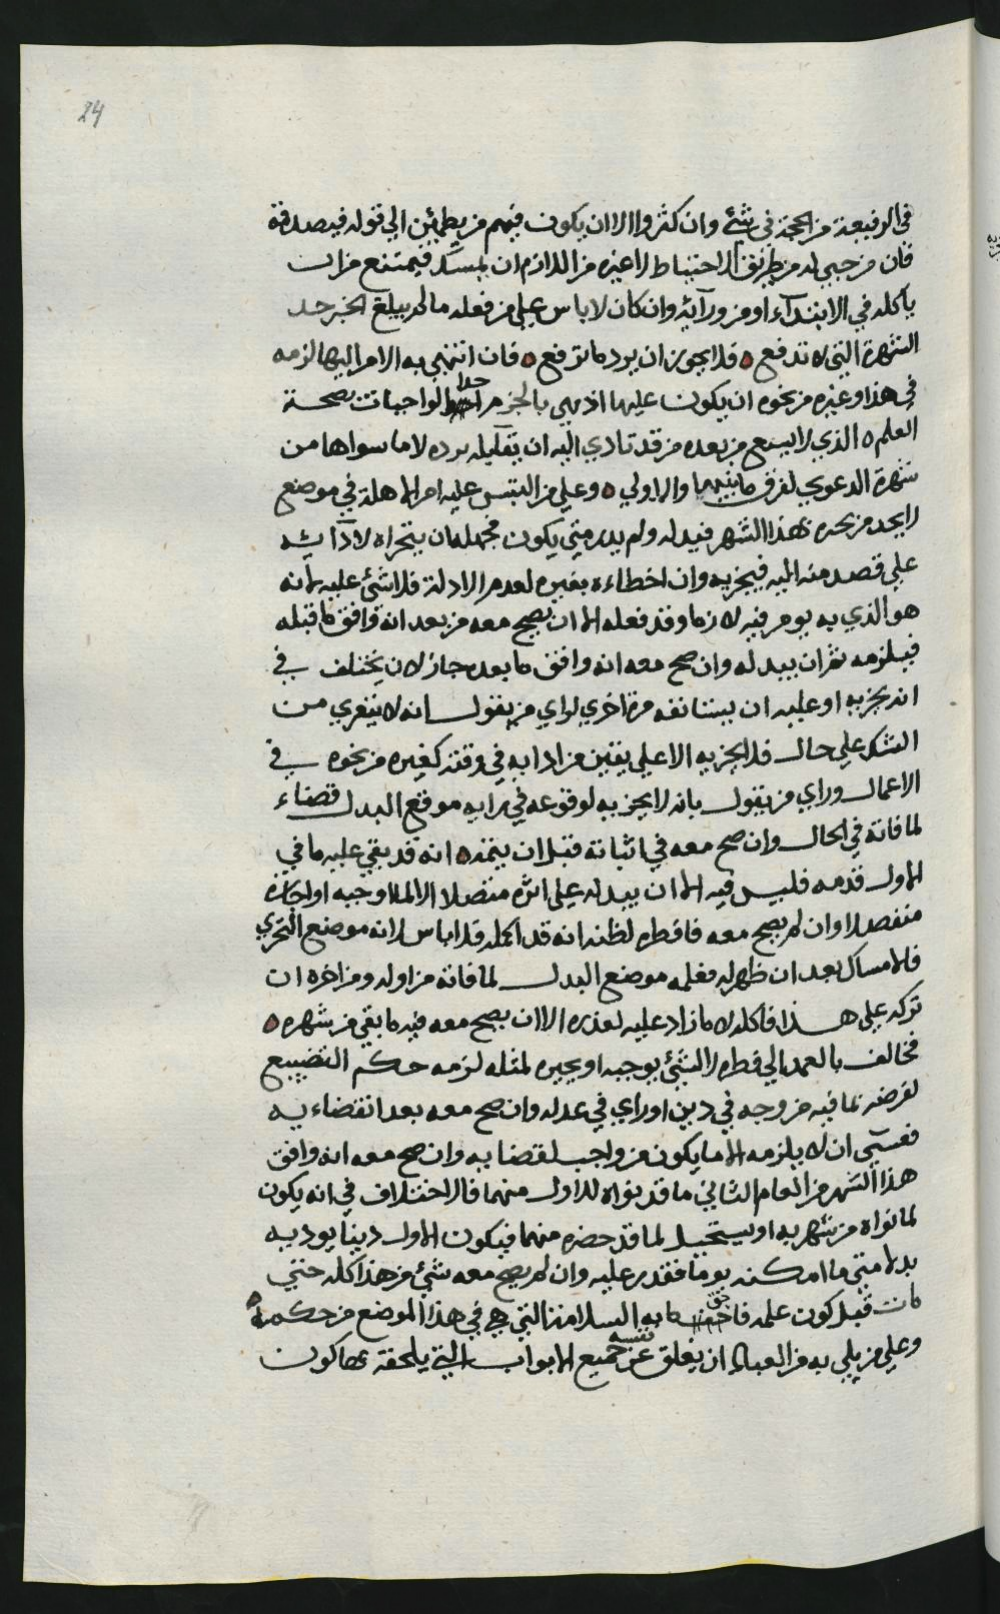 24
في الرفيعة من الحجة في شئ وان كثروا الا ان يكون فيهم من يطمئن الي قوله فيصدقة
فان من جبي له من طريق الاحتياط لا غيره من اللازم ان يمسك فيمتنع من ان
يأكله في الابتدآء او من ورآئه وان كان لا باس علي من فعله ما لم يبلغ الخبر حد
الشهرة التي لا تدفع ه فلا يجوز ان يرد ما ترفع ه فان انتهي به الامر اليها لزمه
في هذا وغيره من نحوه ان يكون عليها اذ هي بالجزم احدا الواجبات بصحة
العلم ه الذي لا يسع من بعده من قد تادي اليه ان يقابله برده لا ما سواها من
شهرة الدعوي لفرق ما بينهما والاولي ه وعلي من التبس عليه امر الاهلة في موضع
لا يجد من يخبره بهذا الشهر فيدله ولم يدر متي يكون فجهله ان يتحراه لادآئه
علي قصد منه اليه فيجزيه وان اخطاءه بغيره لعدم الادلة فلا شئ عليه لانه
هو الذي به يومر فيه لازما وقد فعله الا ان يصح معه من بعد انه وافق ما قبله
فيلزمه ثم ان يبدله وان صح معه انه وافق ما بعده جاز لان يختلف في
انه يجزيه او عليه ان يستانفه مرة اخري لراي من يقول انه لا يتعري من
الشك علي حال فلا يجزيه الا علي يقين من ادا به في وقته كغيره من نحوه في
الاعمال وراي من يقول بانه لا يجزيه لوقوعه في رايه موقع البدل قضاء
لما فاته في الحال وان صح معه في اثنائه قبل ان يتمه ه انه قد بقي عليه ما في
الاول قدمه فليس فيه الا ان يبدله علي اثره متصلا الا لما اوجبه او اجازه
منفصلا وان لم يصح معه فافطره لظنه انه قد اكمله فلا باس لانه موضع التحري
فالامساك بعد ان ظهر له فعليه موضع البدل لما فاته من اوله ومن اخره ان
تركه علي هذا فاكله لا ما زاد عليه لعذره الا ان يصح معه فيه ما بقي من شهره ه
فخالف بالعمد الي فطره لا لشئ يوجبه او يجيره لمثله لزمه حكم التضييع
لفرضه بما فيه من وجه في دين او راي في عدله وان صح معه بعد انقضاءيه
فعسي ان لا يلزمه الا ما يكون من واجب لقضايه وان صح معه انه وافق
هذا الشهر من العام الثاني ما قد نواه للاول منهما فالاختلاف في انه يكون
لما نواه من شهريه او يستحيل لما قد حضره منهما فيكون الاول دينا يوديه
بدلا متي ما امكنه يوما فقدر عليه وان لم يصح معه شئ من هذا كله حتي
مات قبل كون علمه فاحق ما به السلامة التي هي في هذا الموضع من حكمه ه
وعلي من بلي به من العباد ان يغلق عن نفسه جميع الابواب التي يلحقه بها كون